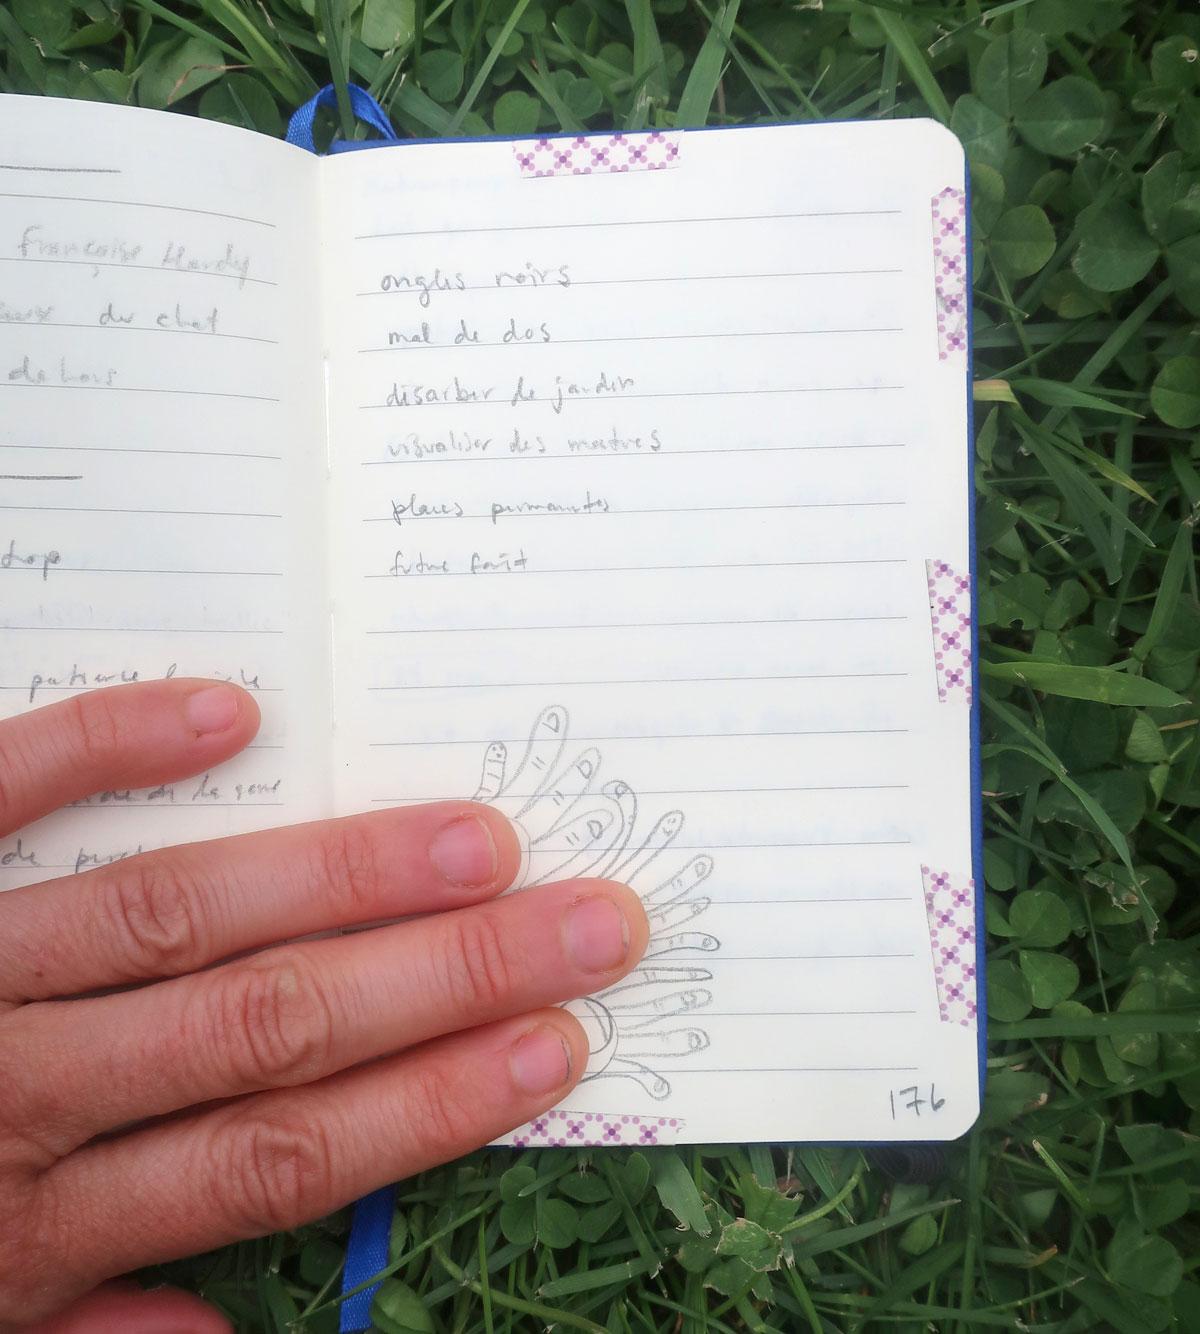 Françoise Hardy
du chat
dehors
trop
patience
de la gare
de
ongles noirs
mal de dos
désarber le jardin
visualiser des mètres
places permanentes
future forêt
176